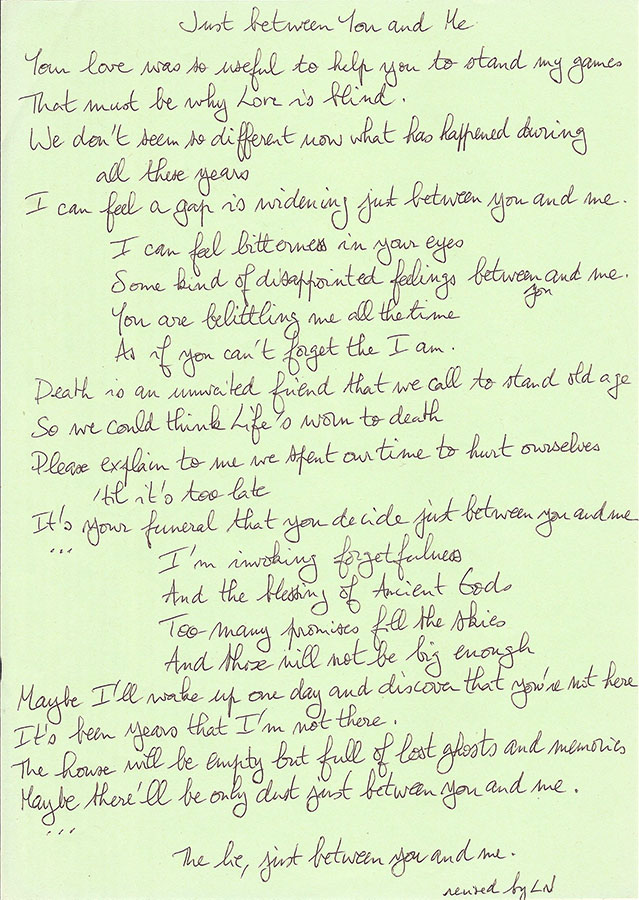 Just between You and Me
Your love was so useful to help you to stand my games
That must be why Love is blind.
We don't seem so different now what has happened during
all these years
I can feel a gap is widening just between you and me.
I can feel bitterness in your eyes
Some kind of disappointed feelings between and me.
you
You are belittling me all the time
As if you can't forget the I am.
Death is an unwaited friend that we call to stand old age
So we could think Life's worn to death
Please explain to me we spent our time to hurt ourselves
'til it's too late
It's your funeral that you decide just between you and me
...
I'm invoking forgetfulness
And the blessing of Ancient Gods
Too many promises fill the skies
And those will not be big enough
Maybe I'll wake up one day and discover that you're not here
It's been years that I'm not there.
The house will be empty but full of lost ghosts and memories
Maybe there'll be only dust just between you and me.
...
The lie, just between you and me.
revised by LN